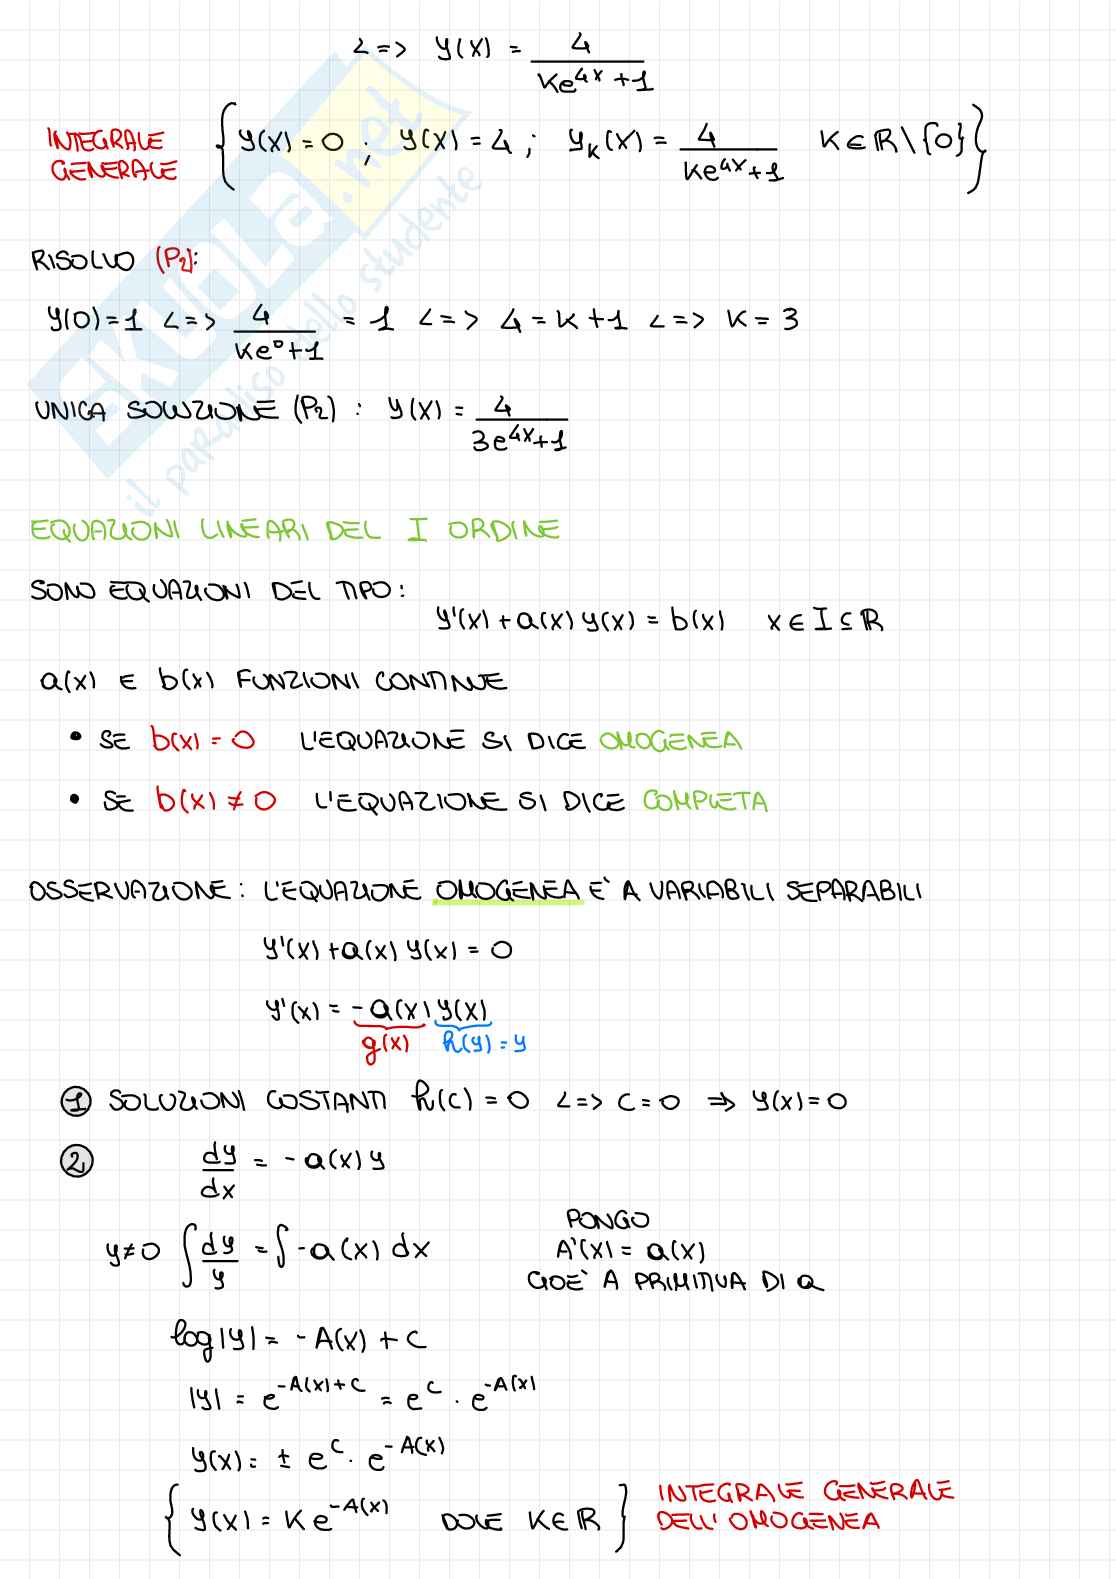 <=> y(x) = 4 / (Ke^{4x} + 1)
INTEGRALE GENERALE { y(x) = 0 ; y(x) = 4 ; y_K(x) = 4 / (Ke^{4x} + 1) K ∈ ℝ \ {0} }
RISOLVO (P₂):
y(0) = 1 <=> 4 / (Ke⁰ + 1) = 1 <=> 4 = K + 1 <=> K = 3
UNICA SOLUZIONE (P₂) : y(x) = 4 / (3e^{4x} + 1)
EQUAZIONI LINEARI DEL I ORDINE
SONO EQUAZIONI DEL TIPO :
y'(x) + a(x) y(x) = b(x) x ∈ I ⊆ ℝ
a(x) E b(x) FUNZIONI CONTINUE
• SE b(x) = 0 L'EQUAZIONE SI DICE OMOGENEA
• SE b(x) ≠ 0 L'EQUAZIONE SI DICE COMPLETA
OSSERVAZIONE : L'EQUAZIONE OMOGENEA E' A VARIABILI SEPARABILI
y'(x) + a(x) y(x) = 0
y'(x) = - a(x) y(x)
g(x) h(y) = y
① SOLUZIONI COSTANTI h(c) = 0 <=> c = 0 => y(x) = 0
② dy/dx = - a(x) y
y ≠ 0 ∫ dy/y = ∫ - a(x) dx
PONGO
A'(x) = a(x)
CIOE' A PRIMITIVA DI a
log|y| = - A(x) + c
|y| = e^{-A(x)+c} = e^c · e^{-A(x)}
y(x) = ± e^c · e^{-A(x)}
{ y(x) = K e^{-A(x)} DOVE K ∈ ℝ } INTEGRALE GENERALE DELL'OMOGENEA
SKUOLA.net
il paradiso dello studente